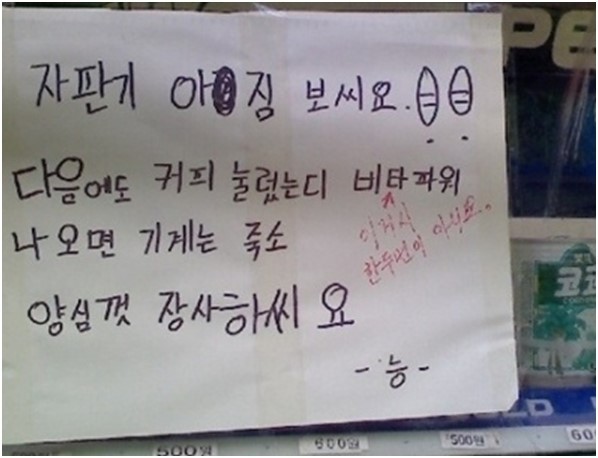 자판기 아짐 보씨요.
다음에도 커피 눌렀는디 비타파워
이게 시
한두번이 아녀요.
나오면 기계는 죽소
양심껏 장사하씨요
- 능 -
PE
코코
LD
500원
600원
500원
600